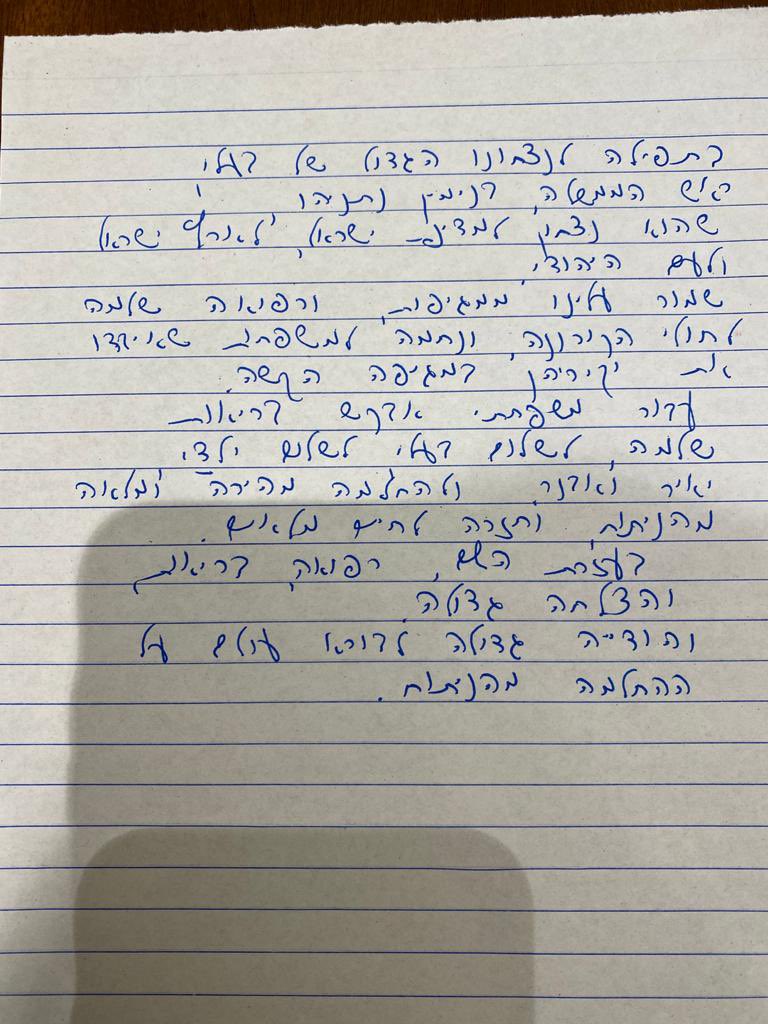 בתפילה לנצחונו הגדול של בעלי
ראש הממשלה, בנימין נתניהו
שהוא נצחון למדינת ישראל, לארץ ישראל
ולעם היהודי.
שמור עלינו ממגיפות, ורפואה שלמה
לחולי הקורונה, ונחמה למשפחות שאיבדו
את יקיריהן במגיפה הקשה.
עבור משפחתי אבקש בריאות
שלמה, לשלום בעלי לשלום ילדי,
יאיר ואבנר, ולהחלמה מהירה ומלאה
מהניתוח, וחזרה לחיים מלאים.
בעזרת השם, רפואה, בריאות,
והצלחה גדולה.
ותודייה גדולה לבורא עולם על
ההחלמה מהניתוח.